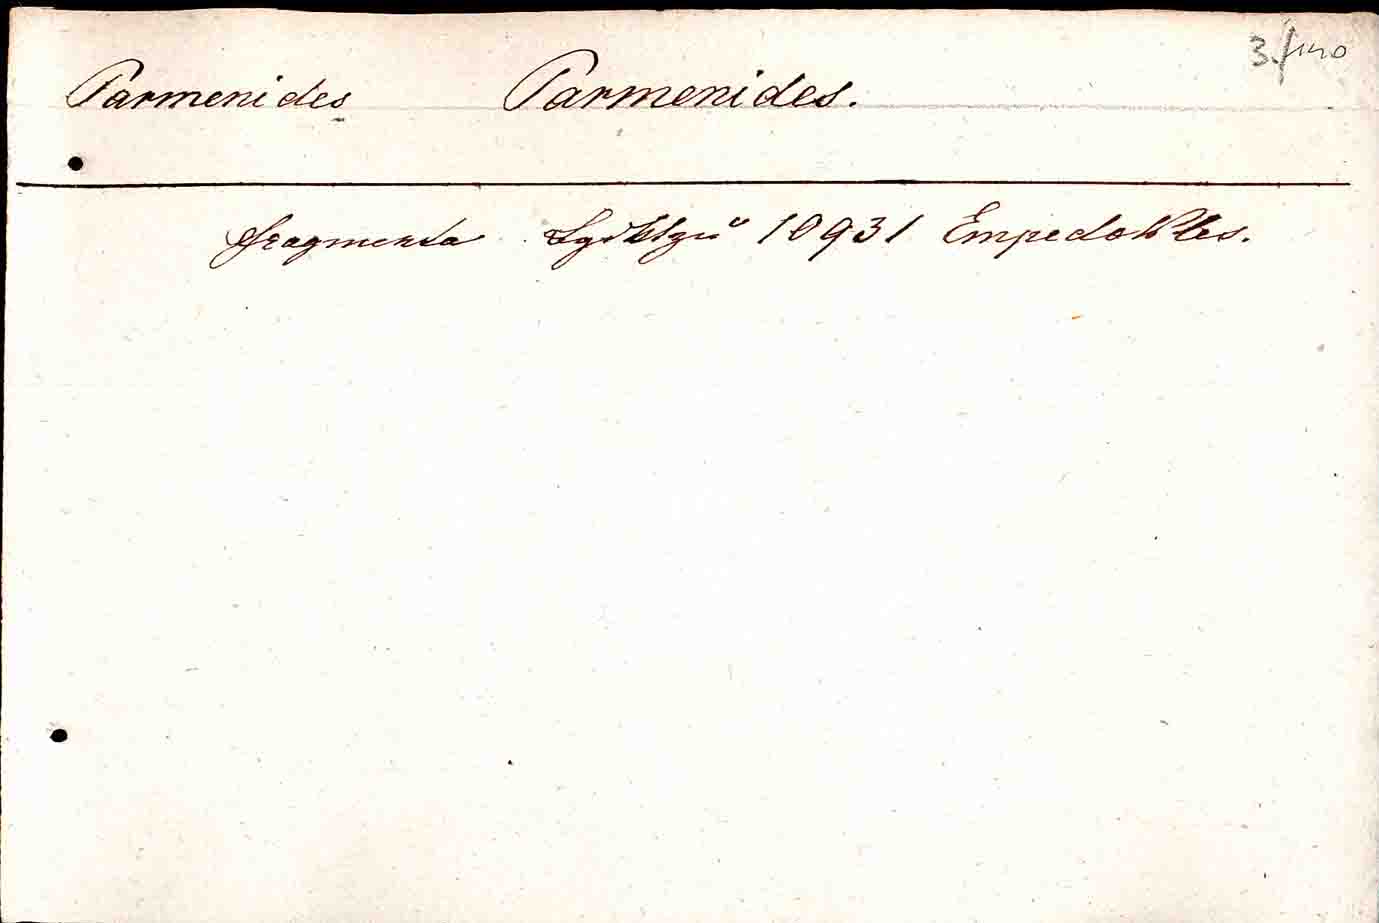 3./140
Parmenides Parmenides.
fragmenta 10931 Empedokles.